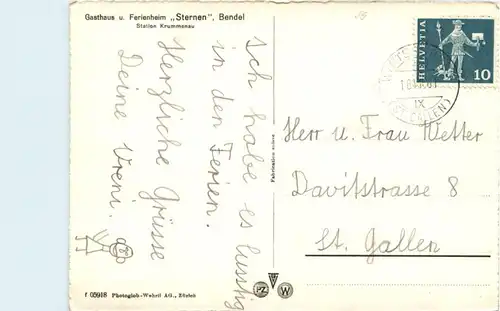 Gasthaus u. Ferienheim „Sternen", Bendel
Station Krummenau
Ich habe es lusstig
in den Ferien.
Herzliche Grüsse
Deine Vreni.
f 05918 Photoglob-Wehrli AG., Zürich
Fabrication suisse
PZ
W
HELVETIA
10
IX
Herr u. Frau Wetter
Davitstrasse 8
St. Gallen